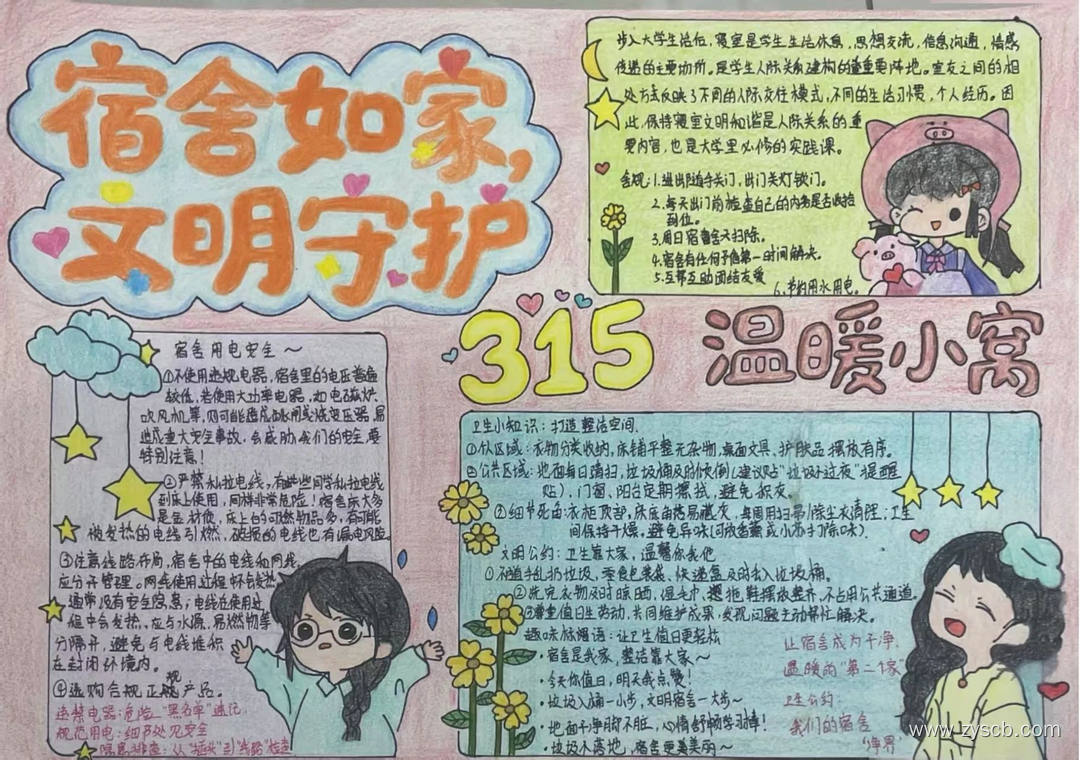 宿舍如家,
文明守护
步入大学生活后,寝室是学生生活休息,思想交流,信息沟通,情感
传递的主要场所。是学生人际关系建构的重要阵地。室友之间的相
处方式反映了不同的人际交往模式,不同的生活习惯,个人经历。因
此,保持寝室文明和谐是人际关系的重
要内容,也是大学里必修的实践课。
舍规:1.进出随手关门,出门关灯锁门。
2.每天出门前检查自己的内务是否收拾
到位。
3.周日宿舍大扫除。
4.宿舍有任何矛盾第一时间解决。
5.互帮互助团结友爱
6.节约用水用电。
315 温暖小窝
宿舍用电安全~
①不使用违规电器,宿舍里的电压普遍
较低,若使用大功率电器,如电磁炉、
吹风机等,则可能造成烧变压器,易
造成重大安全事故,会威胁我们的安全,要
特别注意!
②严禁私拉电线,有些同学私拉电线
到床上使用,同样非常危险!宿舍床大多
是金材质,床上的可燃物品多,有可能
被发热的电线引燃,破损的电线也有漏电风险
③注意线路布局,宿舍中的电线和网线
应分开管理。网线使用过程不会发热,
通常没有安全隐患;电线在使用过
程中会发热,应与水源、易燃物等
分隔开,避免与电线堆积
在封闭环境内。
④选购合规正规产品。
违禁电器:危险"黑名单"速记
规范用电:细节处见安全
隐患排查:从"插头"到"线路"检查
卫生小知识:打造整洁空间.
①个人区域:衣物分类收纳,床铺平整无杂物,桌面文具、护肤品摆放有序。
②公共区域:地面每日清扫,垃圾桶及时清倒(建议贴"垃圾不过夜"提醒
贴),门窗、阳台定期擦拭,避免积灰。
②细节死角:衣柜顶部,床底角落易藏灰,每周用扫帚/除尘衣清理;卫生
间保持干燥,避免异味(可放香薰或小苏打除味).
文明公约:卫生靠大家,温馨你我他
①不随手乱扔垃圾,零食包装袋、快递盒及时丢入垃圾桶。
②洗完衣物及时晾晒,湿毛巾、拖鞋摆放整齐,不占用公共通道。
③尊重值日生劳动,共同维护成果,发现问题主动帮忙解决。
趣味标语:让卫生值日更轻松
·宿舍是我家,整洁靠大家~
·今天你值日,明天我点赞!
·垃圾入桶一小步,文明宿舍一大步~
·地面干净脚不脏,心情舒畅学习棒!
·垃圾不落地,宿舍更美美丽~
让宿舍成为干净、
温暖的"第二个家"
卫生公约:
我们的宿舍
"净界"
www.zyscb.com